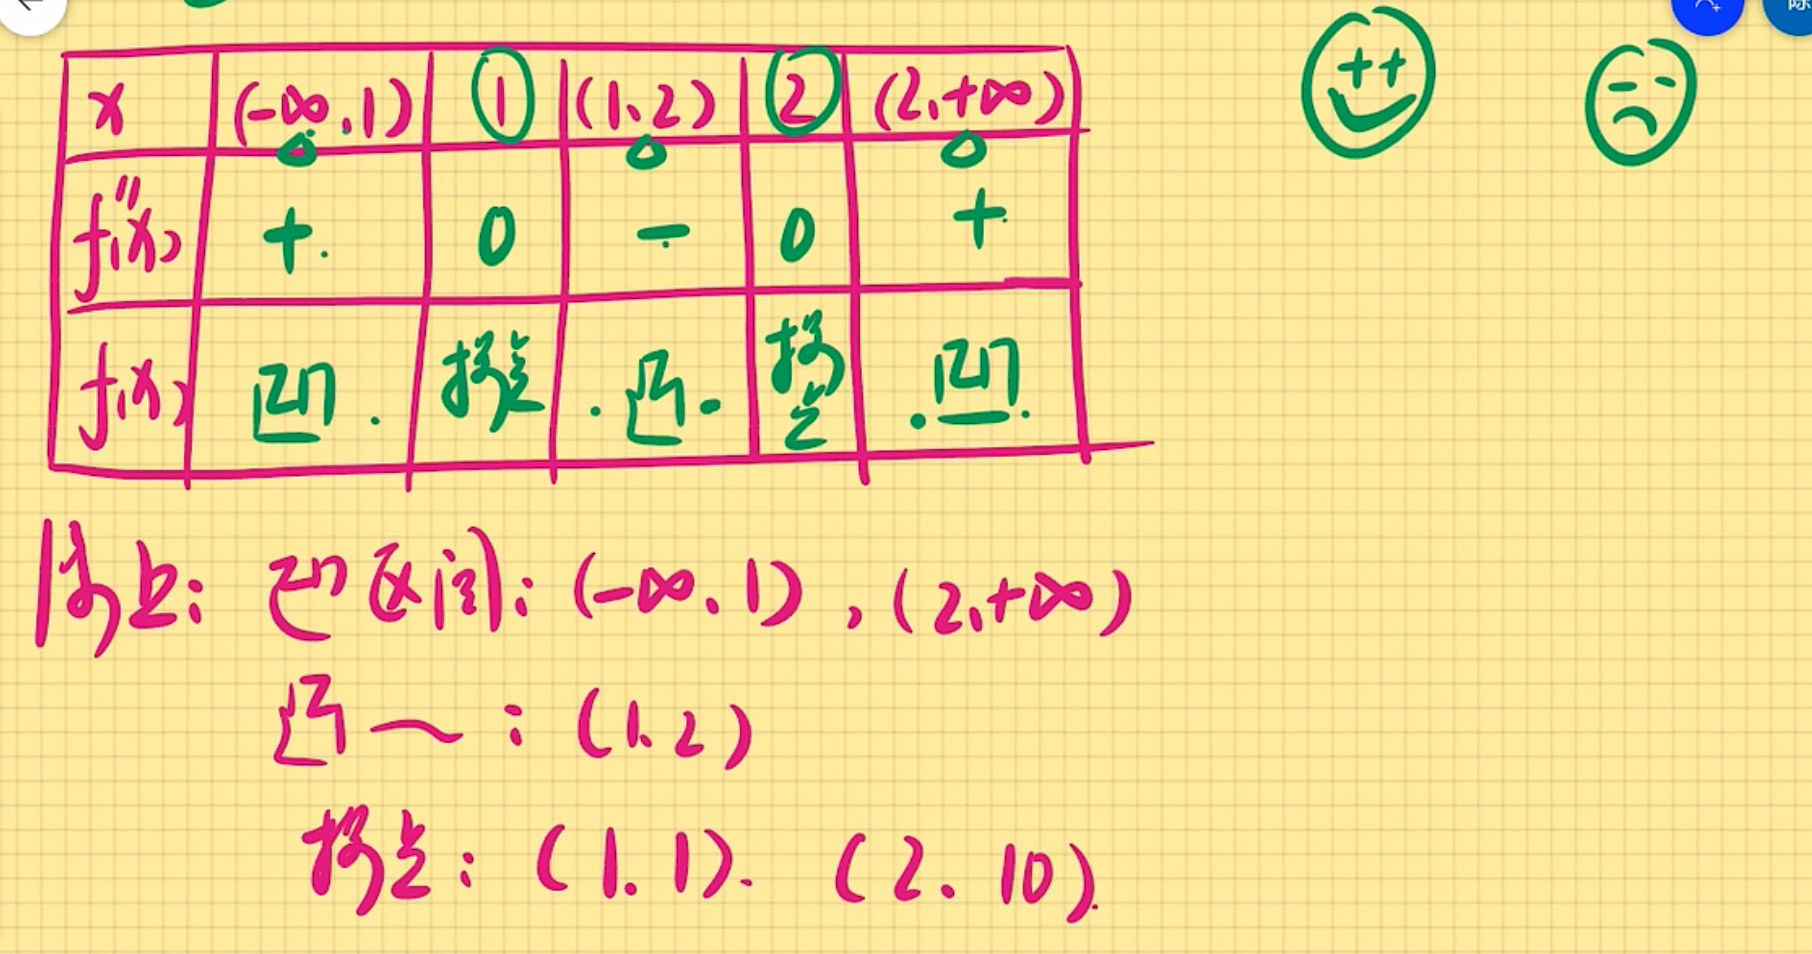 x (-∞,1) 1 (1,2) 2 (2,+∞)
f''(x) + 0 - 0 +
f(x) 凹 拐点 凸 拐点 凹
综上: 凹区间: (-∞,1), (2,+∞)
凸~: (1,2)
拐点: (1,1). (2,10).